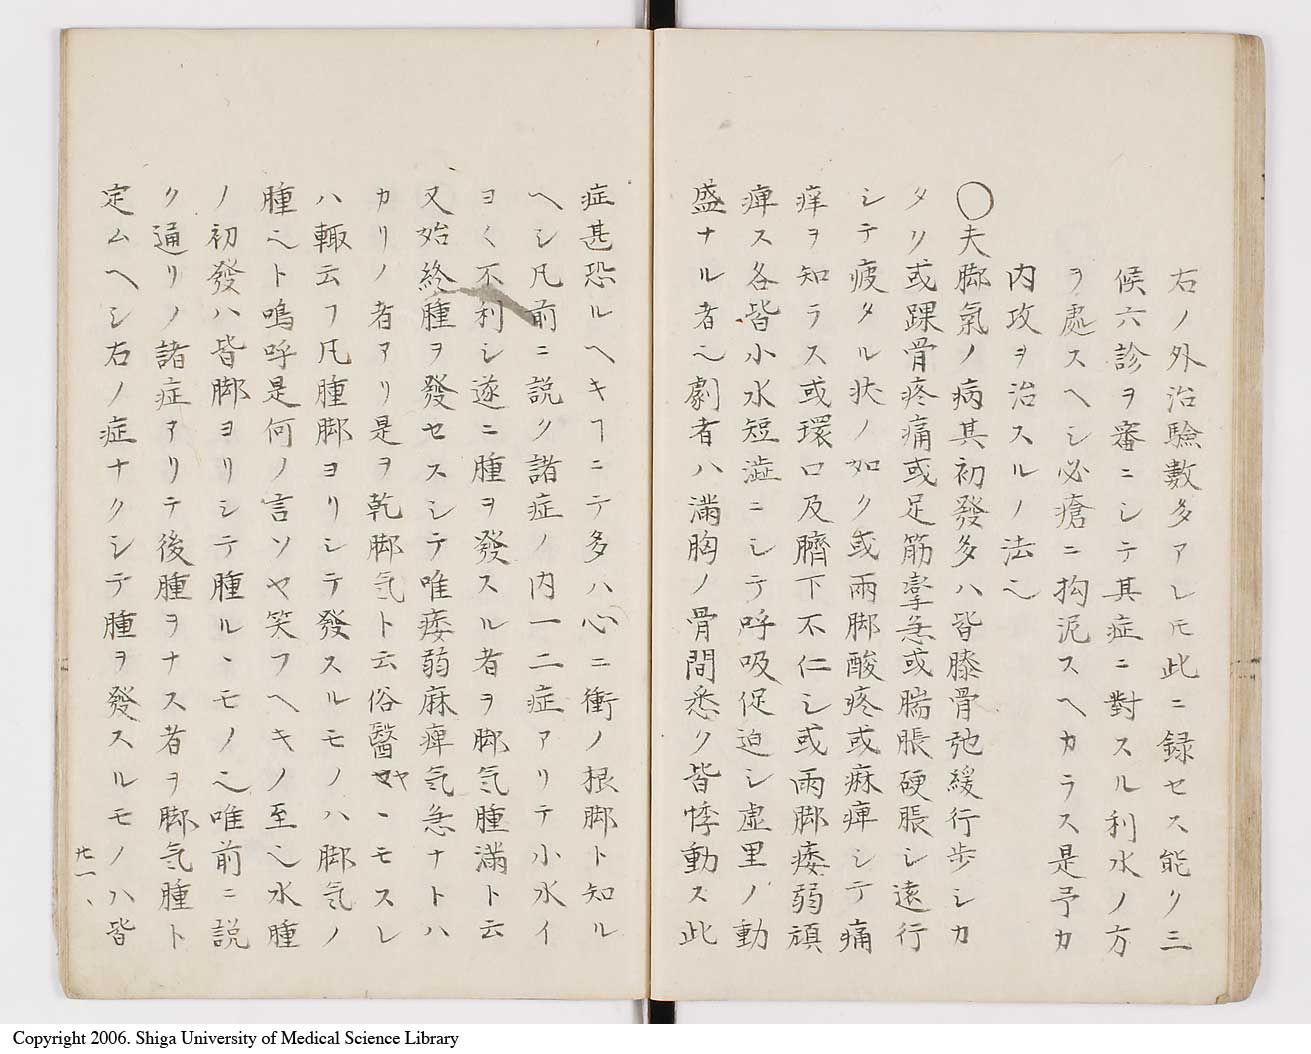 右ノ外治驗數多アレ𪜈此ニ録セス能ク三
候六診ヲ審ニシテ其症ニ對スル利水ノ方
ヲ處スヘシ必瘡ニ拘泥スヘカラス是予カ
内攻ヲ治スルノ法也
〇夫脚氣ノ病其初發多ハ皆膝骨弛緩行歩シカ
タリ或踝骨疼痛或足筋攣急或腨脹硬脹シ遠行
シテ疲タル状ノ如ク或兩脚酸疼或麻痺シテ痛
痒ヲ知ラス或環口及臍下不仁シ或兩脚痿弱頑
痺ス各皆小水短澁ニシテ呼吸促迫シ虚里ノ動
盛ナル者也劇者ハ満胸ノ骨間悉ク皆悸動ス此
症甚恐ルヘキヿニテ多ハ心ニ衝ノ根脚ト知ル
ヘシ凡前ニ説ク諸症ノ内一二症アリテ小水イ
ヨ〱不利シ遂ニ腫ヲ發スル者ヲ脚気腫満ト云
又始終腫ヲ發セスシテ唯痿弱麻痺気急ナトハ
カリノ者アリ是ヲ乾脚気ト云俗醫ヤヽモスレ
ハ輙云フ凡腫脚ヨリシテ發スルモノハ脚気ノ
腫也ト嗚呼是何ノ言ソヤ笑フヘキノ至也水腫
ノ初發ハ皆脚ヨリシテ腫ルヽモノ也唯前ニ説
ク通リノ諸症アリテ後腫ヲナス者ヲ脚気腫ト
定ムヘシ右ノ症ナクシテ腫ヲ發スルモノハ皆
廿一、
Copyright 2006. Shiga University of Medical Science Library